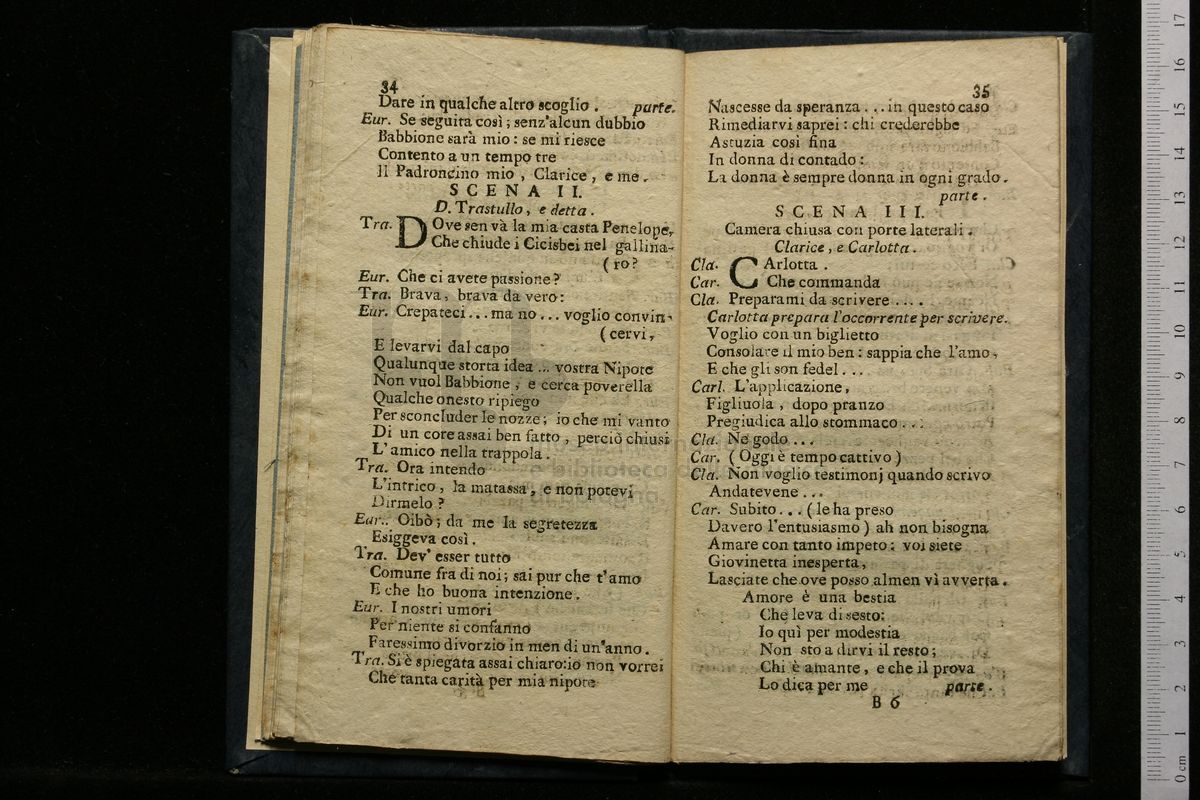 34
Dare in qualche altro scoglio . parte.
Eur. Se seguita così ; senz'alcun dubbio
Babbione sarà mio : se mi riesce
Contento a un tempo tre
Il Padroncino mio , Clarice , e me .
SCENA II.
D. Trastullo , e detta .
Tra. DOve sen và la mia casta Penelope,
Che chiude i Cicisbei nel gallina-
( ro ?
Eur. Che ci avete passione ?
Tra. Brava , brava da vero :
Eur. Crepateci ... ma no ... voglio convin-
( cervi ,
E levarvi dal capo
Qualunque storta idea ... vostra Nipote
Non vuol Babbione , e cerca poverella
Qualche onesto ripiego
Per sconcluder le nozze ; io che mi vanto
Di un core assai ben fatto , perciò chiusi
L' amico nella trappola .
Tra. Ora intendo
L'intrico , la matassa , e non potevi
Dirmelo ?
Eur. Oibò ; da me la segretezza
Esiggeva così .
Tra. Dev' esser tutto
Comune fra di noi ; sai pur che t'amo
E che ho buona intenzione .
Eur. I nostri umori
Per niente si confanno
Faressimo divorzio in men di un'anno .
Tra. Si è spiegata assai chiaro : io non vorrei
Che tanta carità per mia nipote
35
Nascesse da speranza ... in questo caso
Rimediarvi saprei : chi crederebbe
Astuzia così fina
In donna di contado :
La donna è sempre donna in ogni grado .
parte .
SCENA III.
Camera chiusa con porte laterali .
Clarice , e Carlotta .
Cla. CArlotta .
Car. Che commanda
Cla. Preparami da scrivere ....
Carlotta prepara l'occorrente per scrivere.
Voglio con un biglietto
Consolare il mio ben : sappia che l'amo ,
E che gli son fedel ...
Carl. L'applicazione ,
Figliuola , dopo pranzo
Pregiudica allo stommaco ...
Cla. Ne godo ...
Car. ( Oggi è tempo cattivo )
Cla. Non voglio testimonj quando scrivo
Andatevene ...
Car. Subito ... ( le ha preso
Davero l'entusiasmo ) ah non bisogna
Amare con tanto impeto : voi siete
Giovinetta inesperta ,
Lasciate che ove posso almen vi avverta .
Amore è una bestia
Che leva di sesto :
Io quì per modestia
Non sto a dirvi il resto ;
Chi è amante , e che il prova
Lo dica per me parte .
B 6
17
16
15
14
13
12
11
10
9
8
7
6
5
4
3
2
1
0 cm